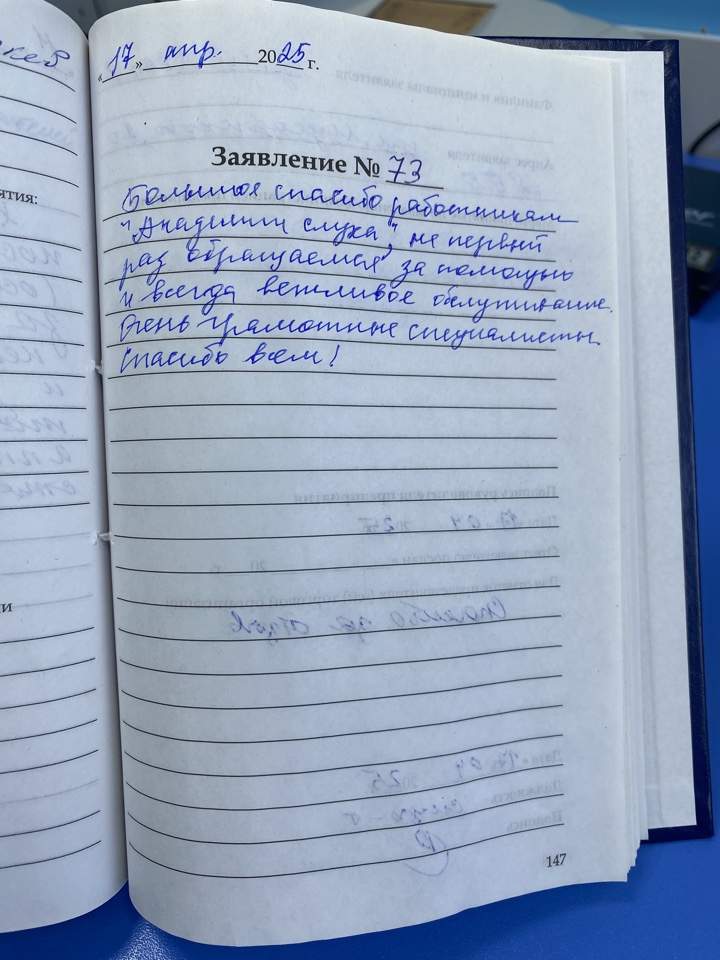 «17» апр. 2025 г.
Заявление № 73
Большое спасибо работникам
"Академии слуха", не первый
раз обращаемся за помощью
и всегда вежливое обслуживание.
Очень грамотные специалисты.
Спасибо всем!
147
ятия: